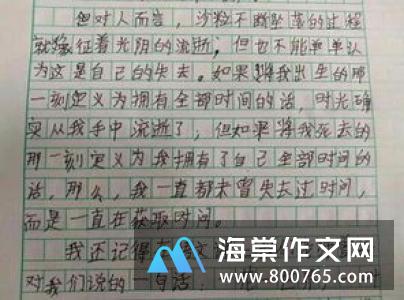 但对人而言，沙粒不断坠落的过程
就象征着光阴的流逝；但也不能单单认
为这是自己的失去。如果将我出生的那
一刻定义为拥有全部时间的话，时光确
实从我手中流逝了，但如果将我死去的
那一刻定义为我拥有了自己全部时间的
话，那么，我一直都未曾失去过时间，
而是一直在获取时间。
我还记得
对我们说的一句话：
海棠作文网
www.800765.com